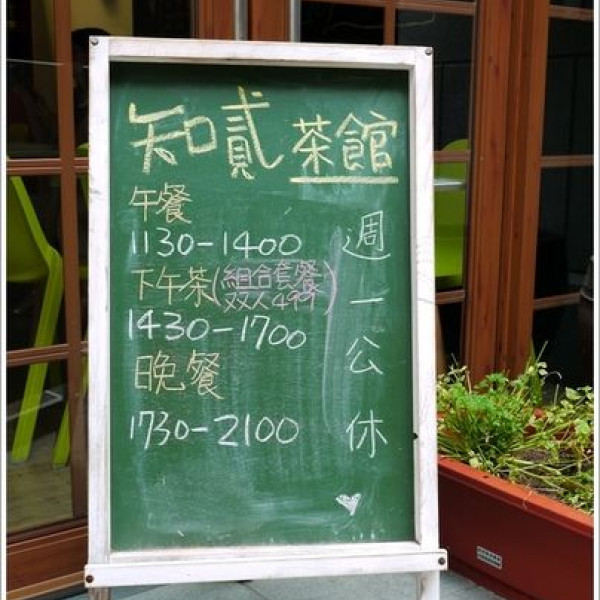 知貳茶館
午餐
1130-1400
下午茶(組合套餐
双人499)
1430-1700
晚餐
1730-2100
週一公休